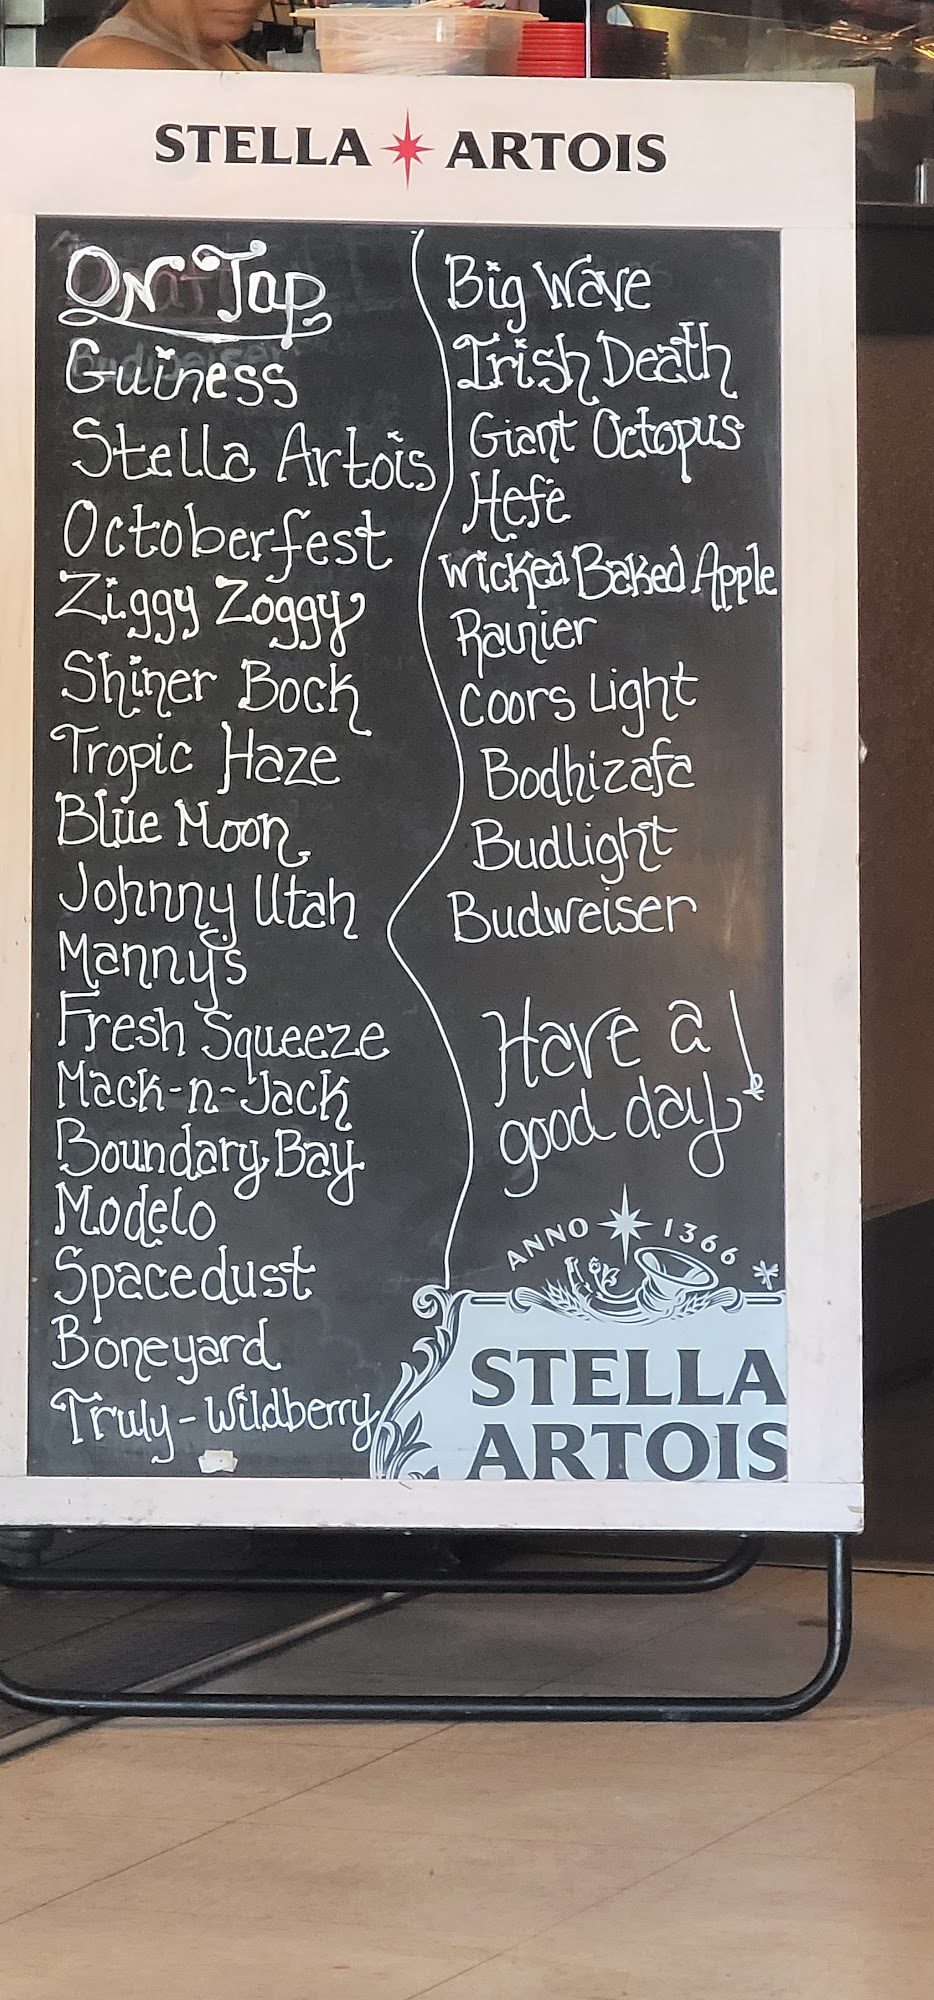 STELLA ARTOIS
On Tap
Guiness
Stella Artois
Octoberfest
Ziggy Zoggy
Shiner Bock
Tropic Haze
Blue Moon
Johnny Utah
Manny's
Fresh Squeeze
Mack-n-Jack
Boundary Bay
Modelo
Spacedust
Boneyard
Truly-Wildberry
Big Wave
Irish Death
Giant Octopus
Hefe
Wicked Baked Apple
Rainier
Coors Light
Bodhizafa
Budlight
Budweiser
Have a
good day!
ANNO 1366
STELLA
ARTOIS